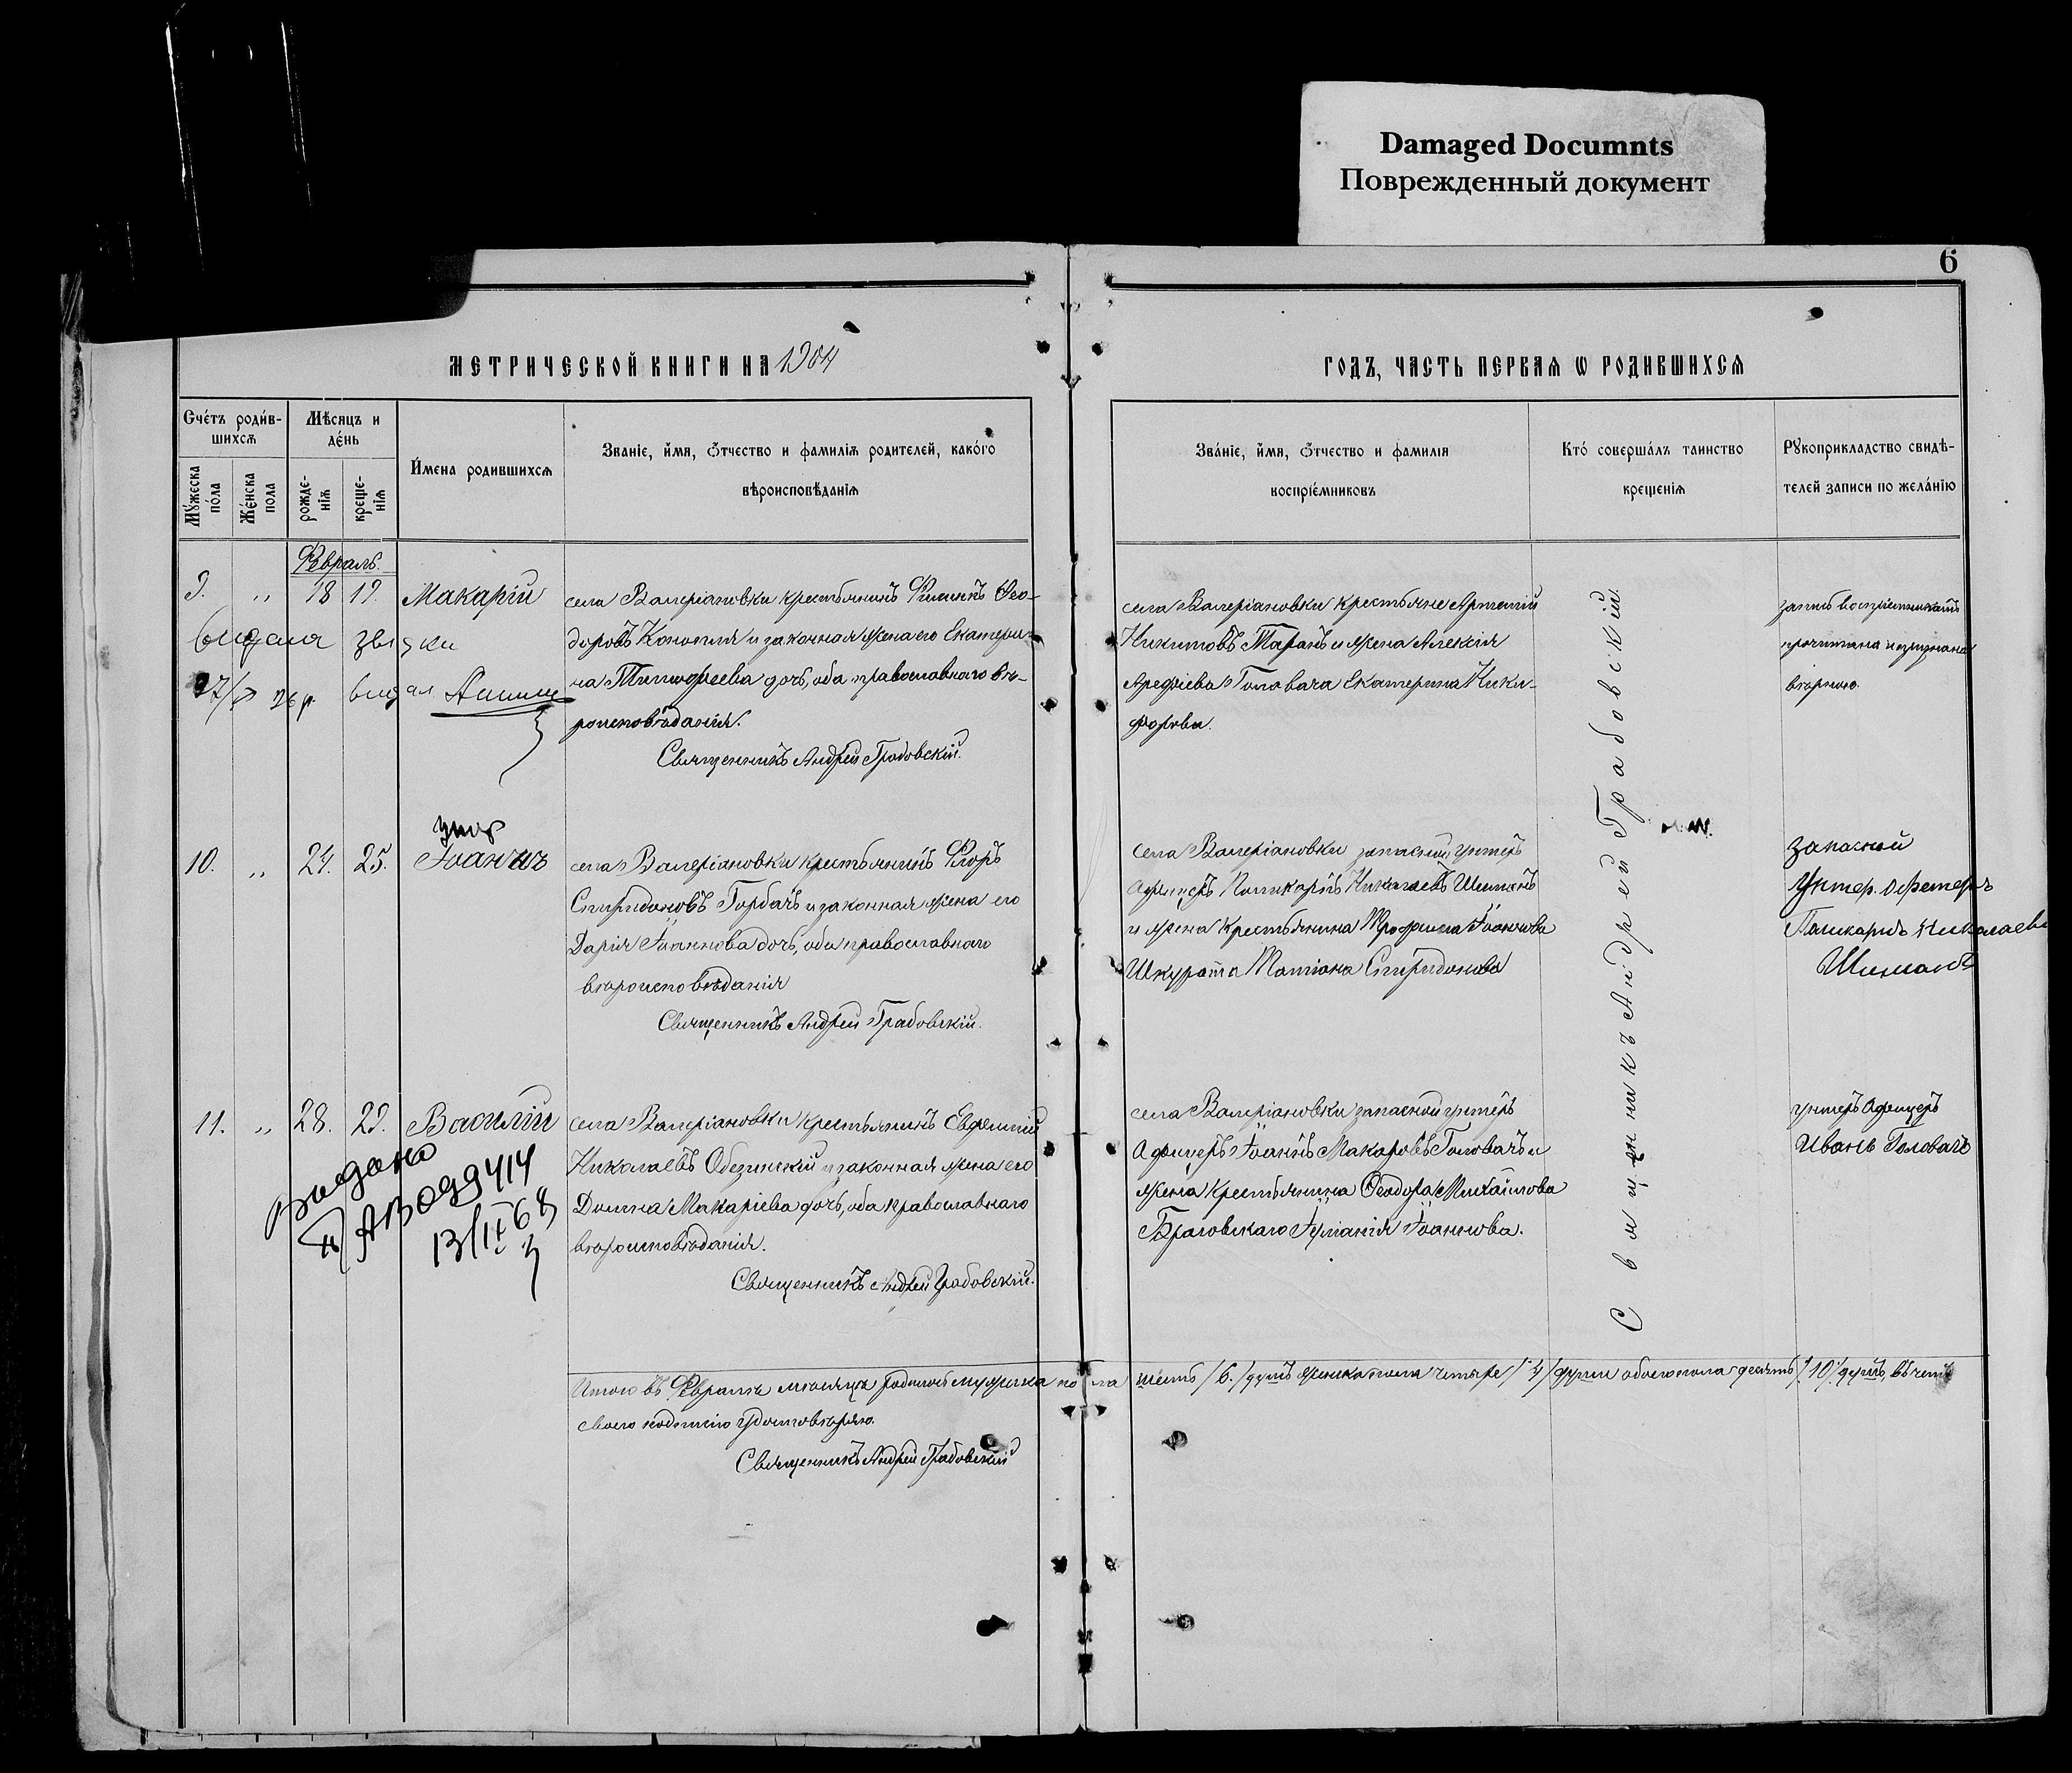 Damaged Documnts
Поврежденный документ
6
МЕТРИЧЕСКОЙ КНИГИ НА 1904
ГОДЪ, ЧАСТЬ ПЕРВАѦ Ѡ РОДИВШИХСѦ
Счéтъ роди́в-
шихсѧ
Мѣсяцъ и
дéнь
Му́жеска
по́ла
Же́нска
пола
рожде-
нїѧ
креще-
нїѧ
И́мена родившихсѧ
Званїе, и́мя, ѻ҆тчество и фамилїѧ родителей, како́го
вѣроисповѣ́данїѧ
Зва́нїе, и́мя, ѻ҆тчество и фамилїя
воспрїе́мниковъ
Кто́ соверша́лъ таинство
крещенїѧ
Рꙋкоприкладство свидѣ-
телей записи по жела́нїю
Февраль.
9. „ 18 19. Макарій
села Валеріановки крестьянинъ Филипъ Ѳео-
доровъ Конопля и законная жена его Екатери-
на Тимофеева дочь, оба православного вѣ-
роисповѣданія.
Священникъ Андрей Грабовскій.
села Валеріановки крестьяне Артемій
Никитовъ Таранъ и жена Алексія
Арефіева Головача Екатерина Ники-
форова.
запись воспріемникамъ
прочитана и признана
вѣрною.
10. „ 24. 25. Іоаннъ
села Валеріановки крестьянинъ Флоръ
Спиридоновъ Горбачъ и законная жена его
Дарія Іоаннова дочь, оба православного
вѣроисповѣданія
Священникъ Андрей Грабовскій.
села Валеріановки запасный унтеръ
офицеръ Поликарпъ Николаевъ Шиманъ
и жена крестьянина Трофима Іоаннова
Шкурата Татіана Спиридонова
запасной
Унтер. офицеръ
Поликарпъ Николаевъ
Шиманъ
11. „ 28. 29. Василій
Видано
13/IX 68
села Валеріановки крестьянинъ Евфимій
Николаевъ Обезинскій и законная жена его
Домна Макаріева дочь, оба православного
вѣроисповѣданія.
Священникъ Андрей Грабовскій.
села Валеріановки запасной унтеръ
офицеръ Іоаннъ Макаровъ Головачъ и
жена крестьянина Ѳеодора Михайлова
Браговскаго Іуліанія Іоаннова.
унтеръ Офицеръ
Иванъ Головачъ
Священникъ Андрей Грабовскій.
Итого въ Февралѣ мѣсяцѣ родилось мужеска пола шесть /6./ душъ женска пола четыре /4/ души обоего пола десять /10/ душъ, въ чемъ
своею подписью удостовѣряю.
Священникъ Андрей Грабовскій